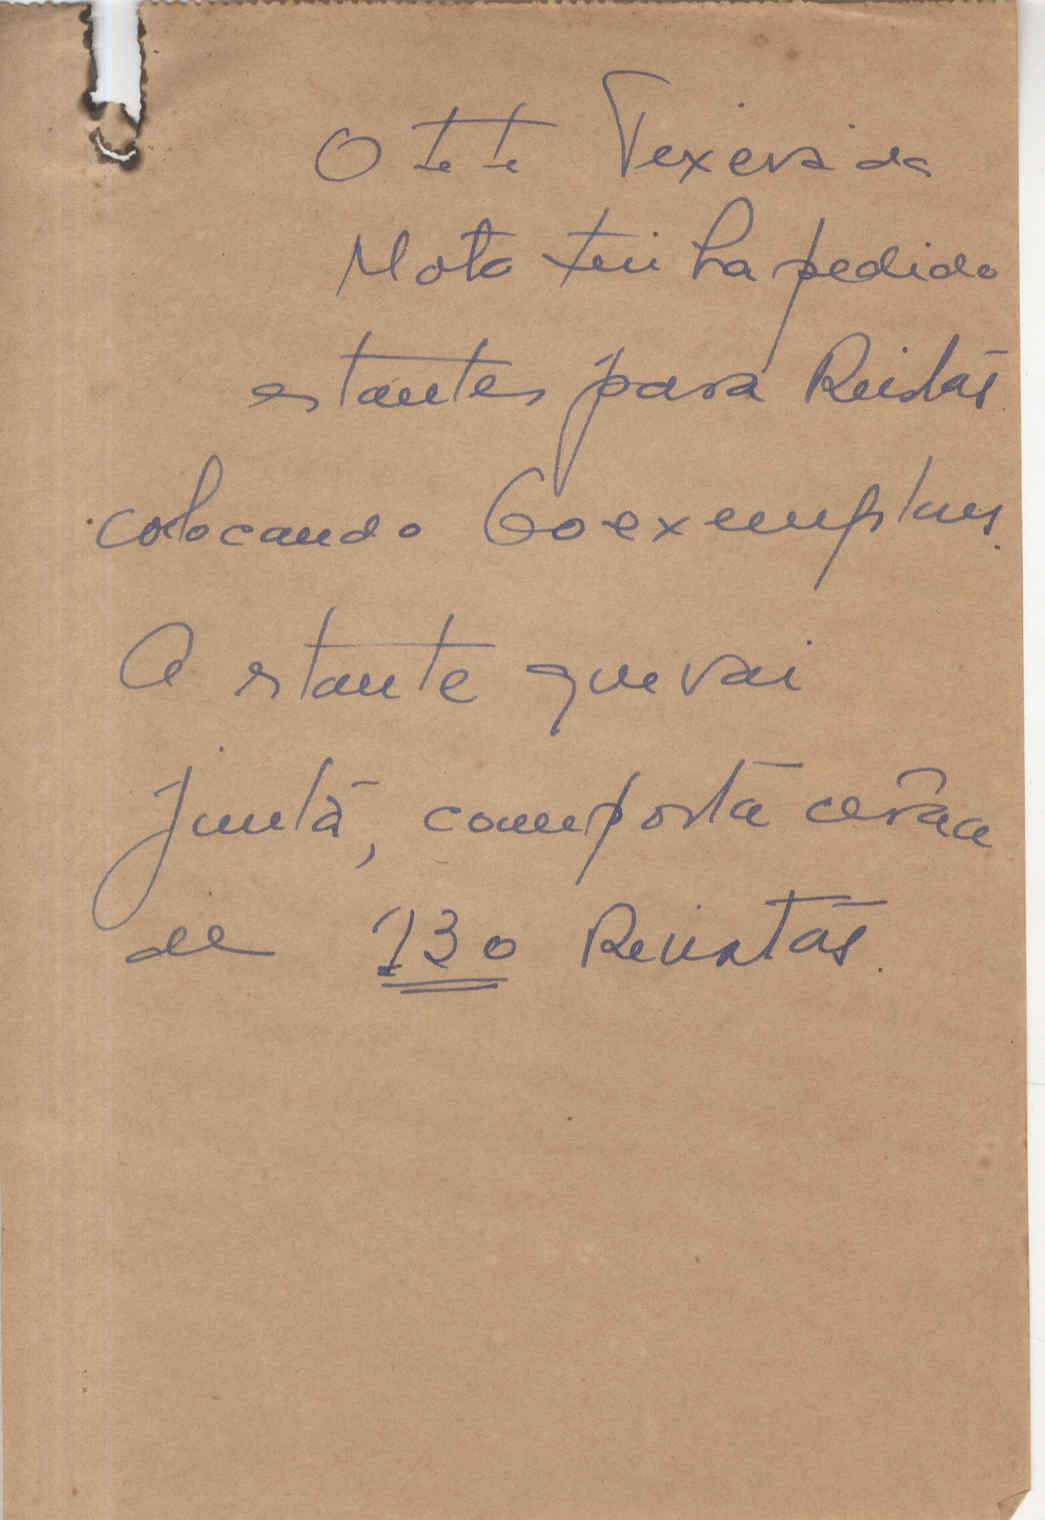 O te te Texeira da
Mota tinha pedido
estantes para Revistas
colocando 60 exemplares.
A estante que vai
junta, comporta cêrca
de 130 Revistas.